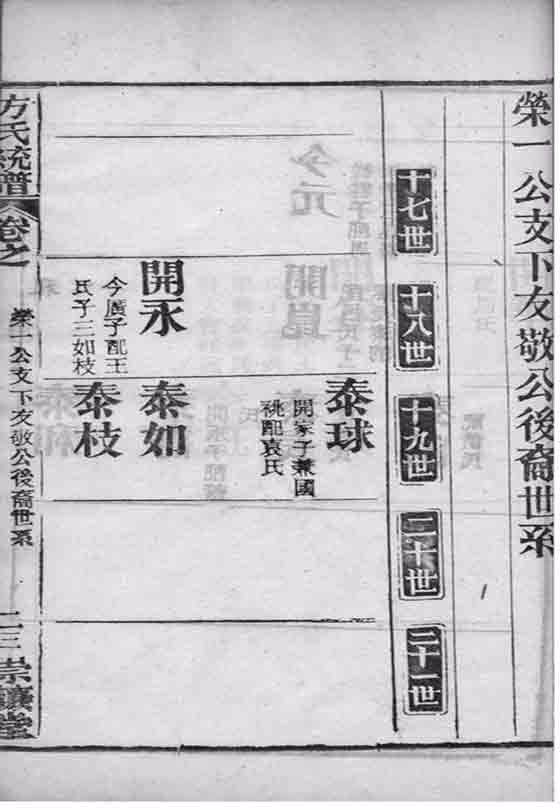 榮一公支下友敬公後裔世系
十七世
十八世
十九世
二十世
二十一世
泰球
開家子兼國
祧配袁氏
開永
今廣子配王
氏子三如枝
泰如
泰枝
方氏統譜
卷之
榮一公支下友敬公後裔世系
二三